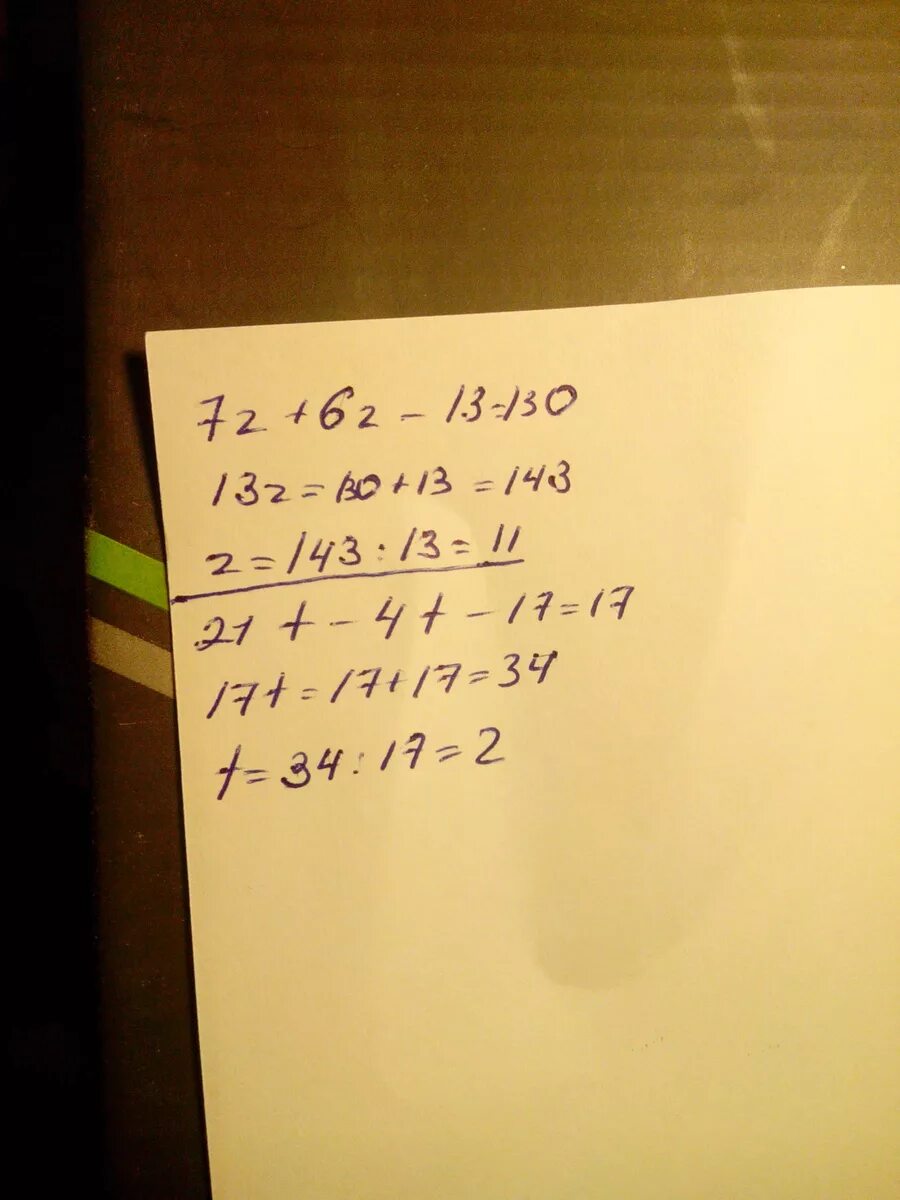 7z + 6z - 13 = 130
13z = 130 + 13 = 143
z = 143 : 13 = 11
21 t - 4 t - 17 = 17
17 t = 17 + 17 = 34
t = 34 : 17 = 2